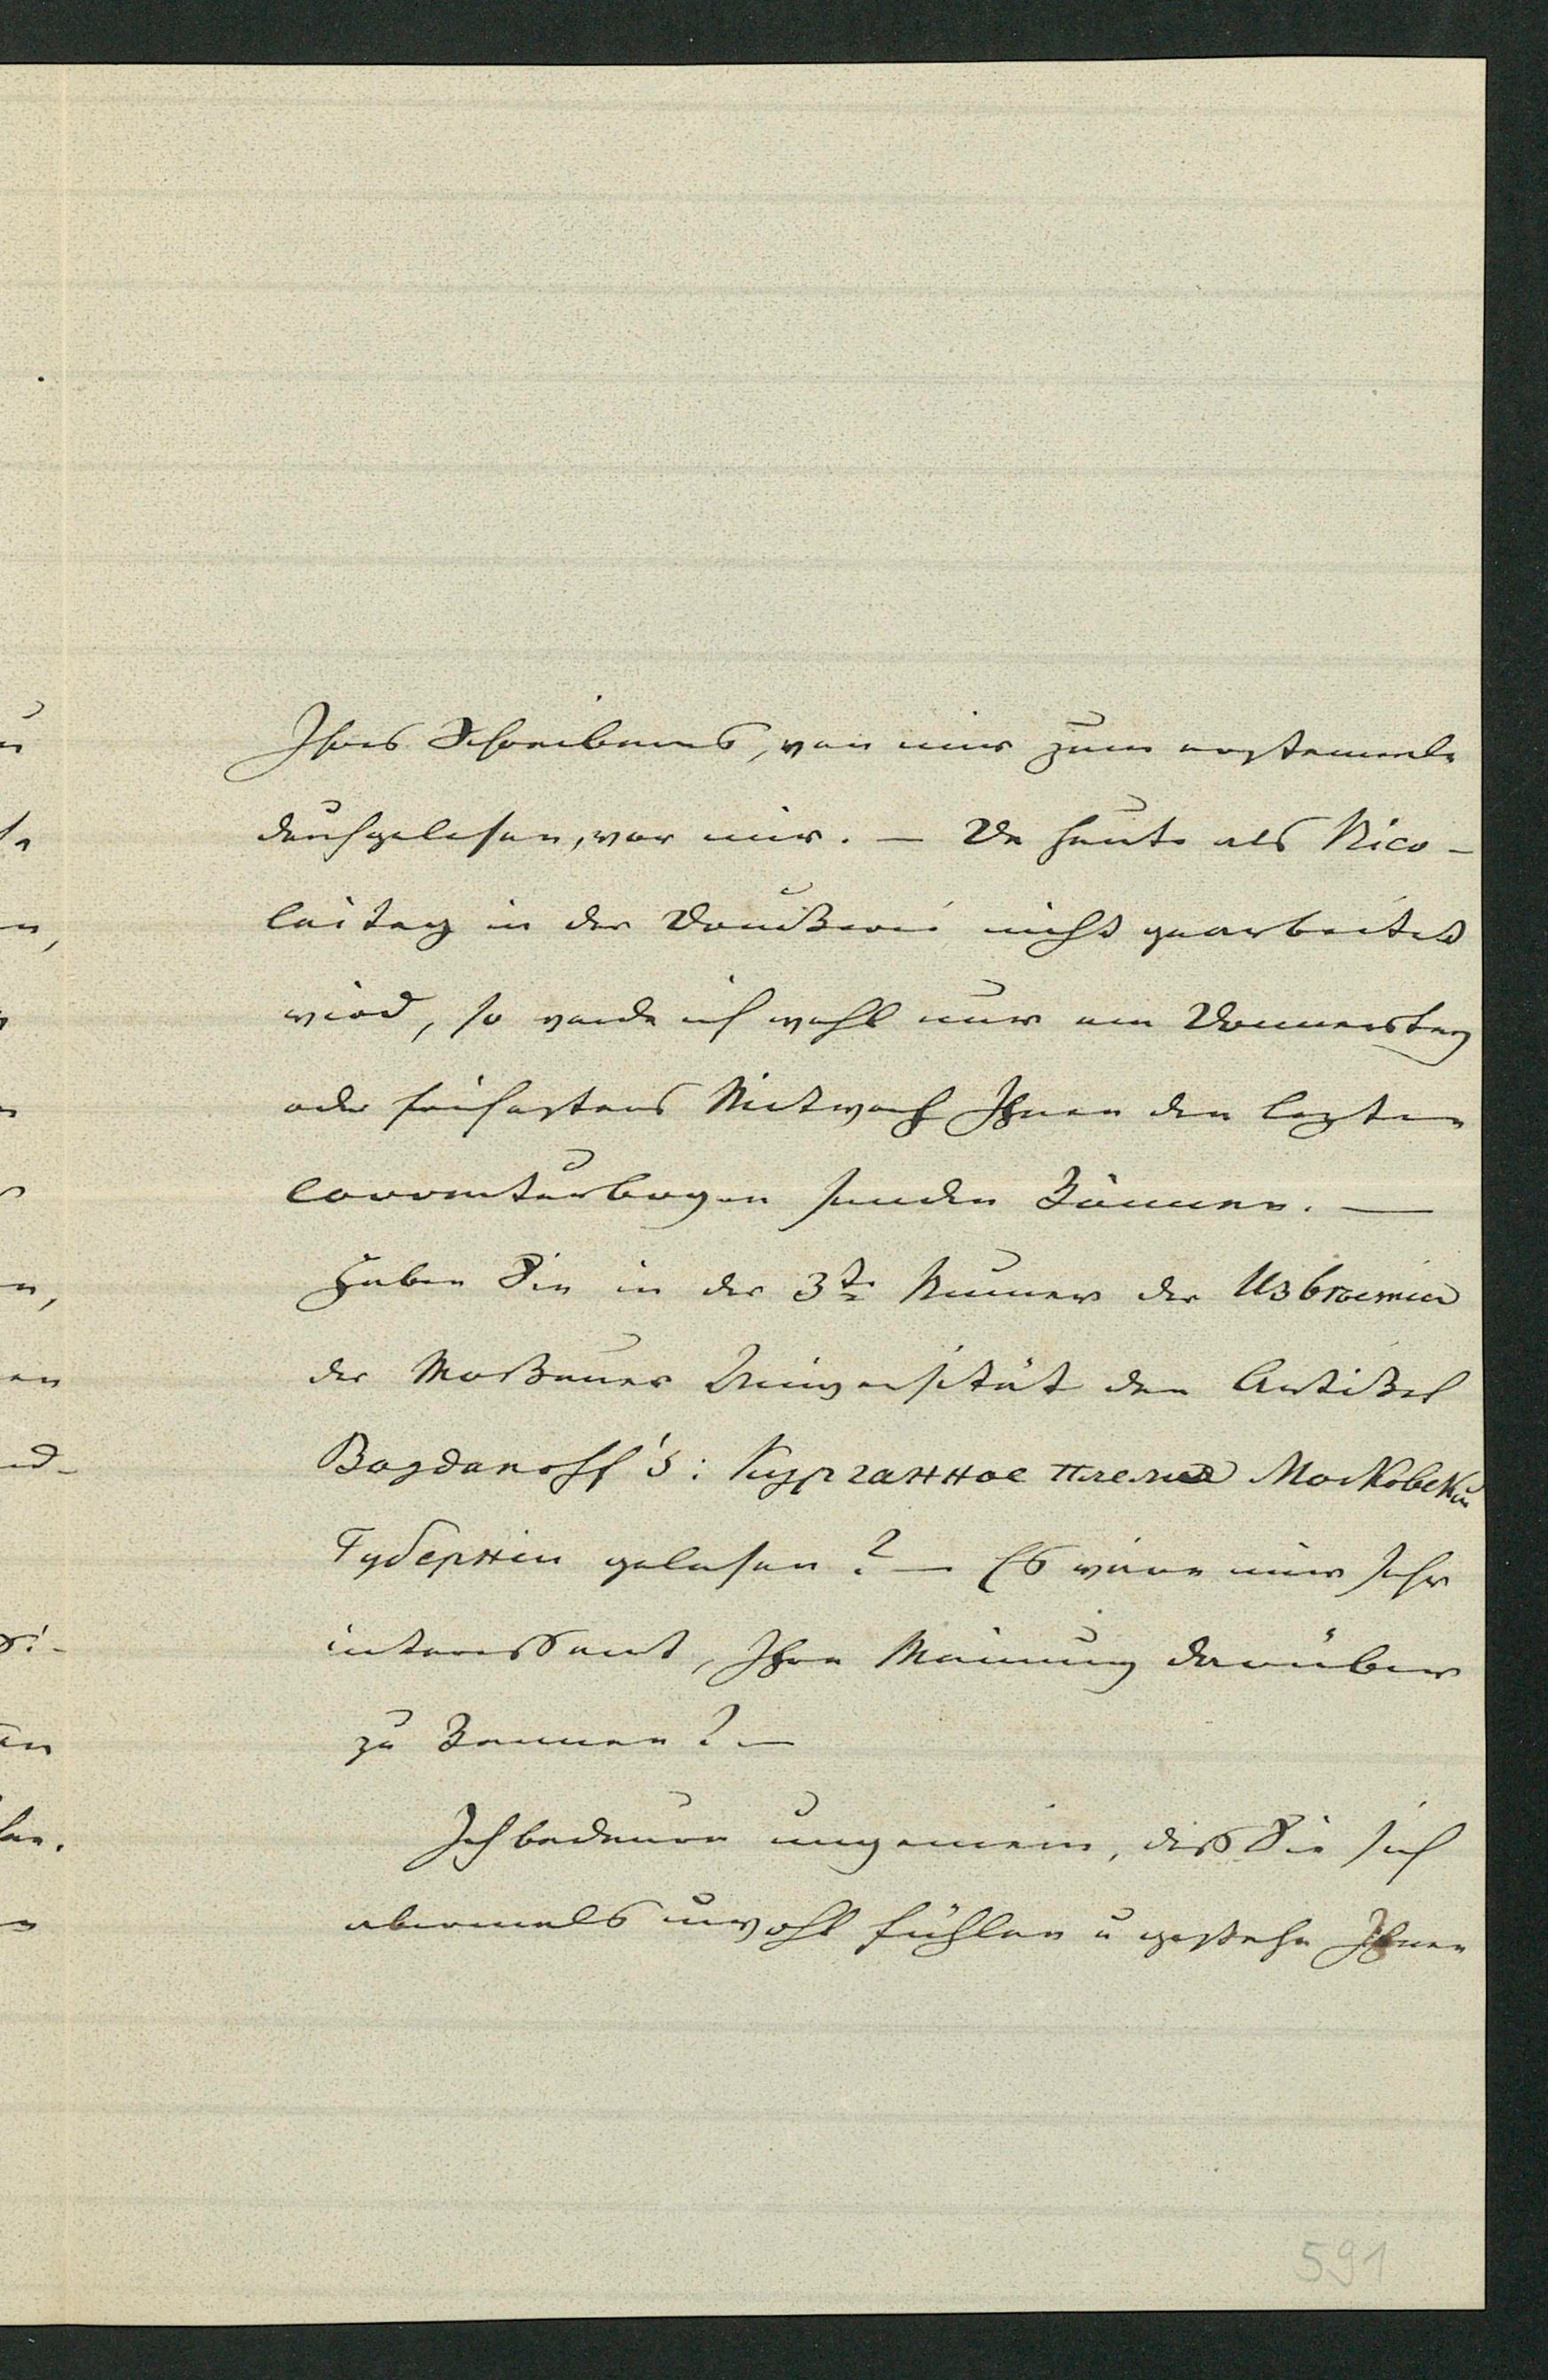 Ihres Schreibens, von mir zum erstemale
durchgelesen, vor mir. — Da heute als Nico-
laitag in der Druckerei nicht gearbeitet
wird, so werde ich wohl nur am Donnerstag
oder frühestens Mittwoch Ihnen den lezten
Correcturbogen senden können. —
Haben Sie in der 3te Numer der Извѣстія
der Moskauer Universität den Artikel
Bogdanoff's: Курганное племя Московской
Губерніи gelesen? — Es wäre mir sehr
interessant, Ihre Meinung darüber
zu kennen? —
Ich bedaure ungemein, daß Sie sich
abermals unwohl fühlen u gestehe Ihnen
591